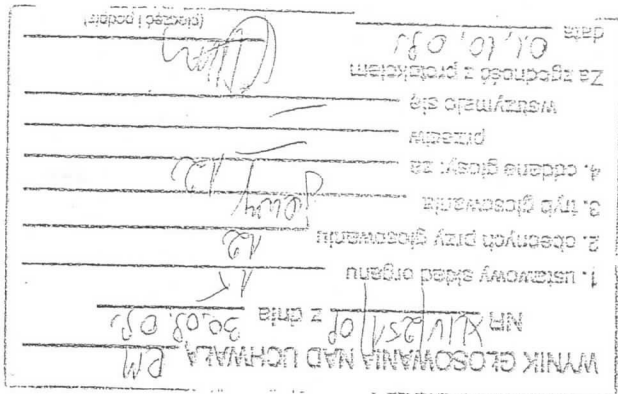 WYNIK GŁOSOWANIA NAD UCHWAŁĄ RM
NR XLIV/251/09 z dnia 30.09.09r.
1. ustawowy skład organu 15
2. obecnych przy głosowaniu 12
3. tryb głosowania jawny
4. oddane głosy: za 12
przeciw —
wstrzymało się —
Za zgodność z protokołem
data 01.10.09r.
(pieczęć i podpis)